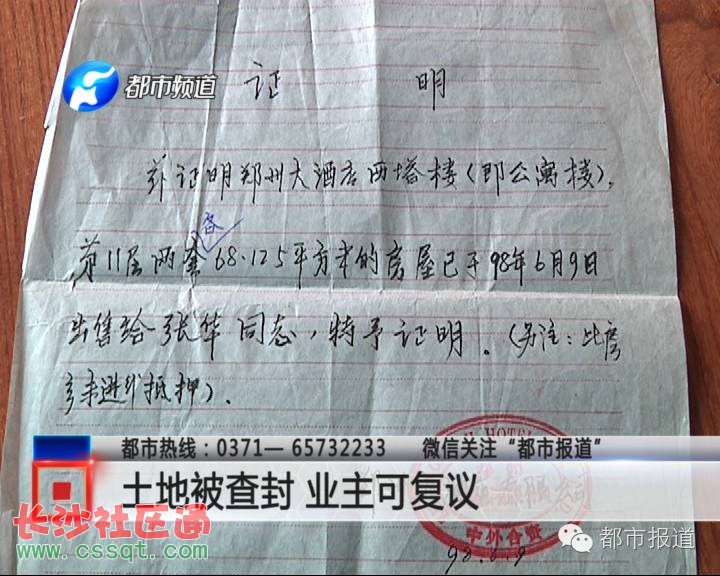 都市频道
证 明
兹证明郑州大酒店西塔楼(即公寓楼),
各
第11层两套68.125平方米的房屋已于98年6月9日
出售给张华同志,特予证明。(另注:此房
产未进行抵押)。
HOTEL
都市热线:0371—65732233 微信关注“都市报道”
土地被查封 业主可复议
有限
中外合资
长沙社区通
www.cssqt.com
都市报道
98.6.9